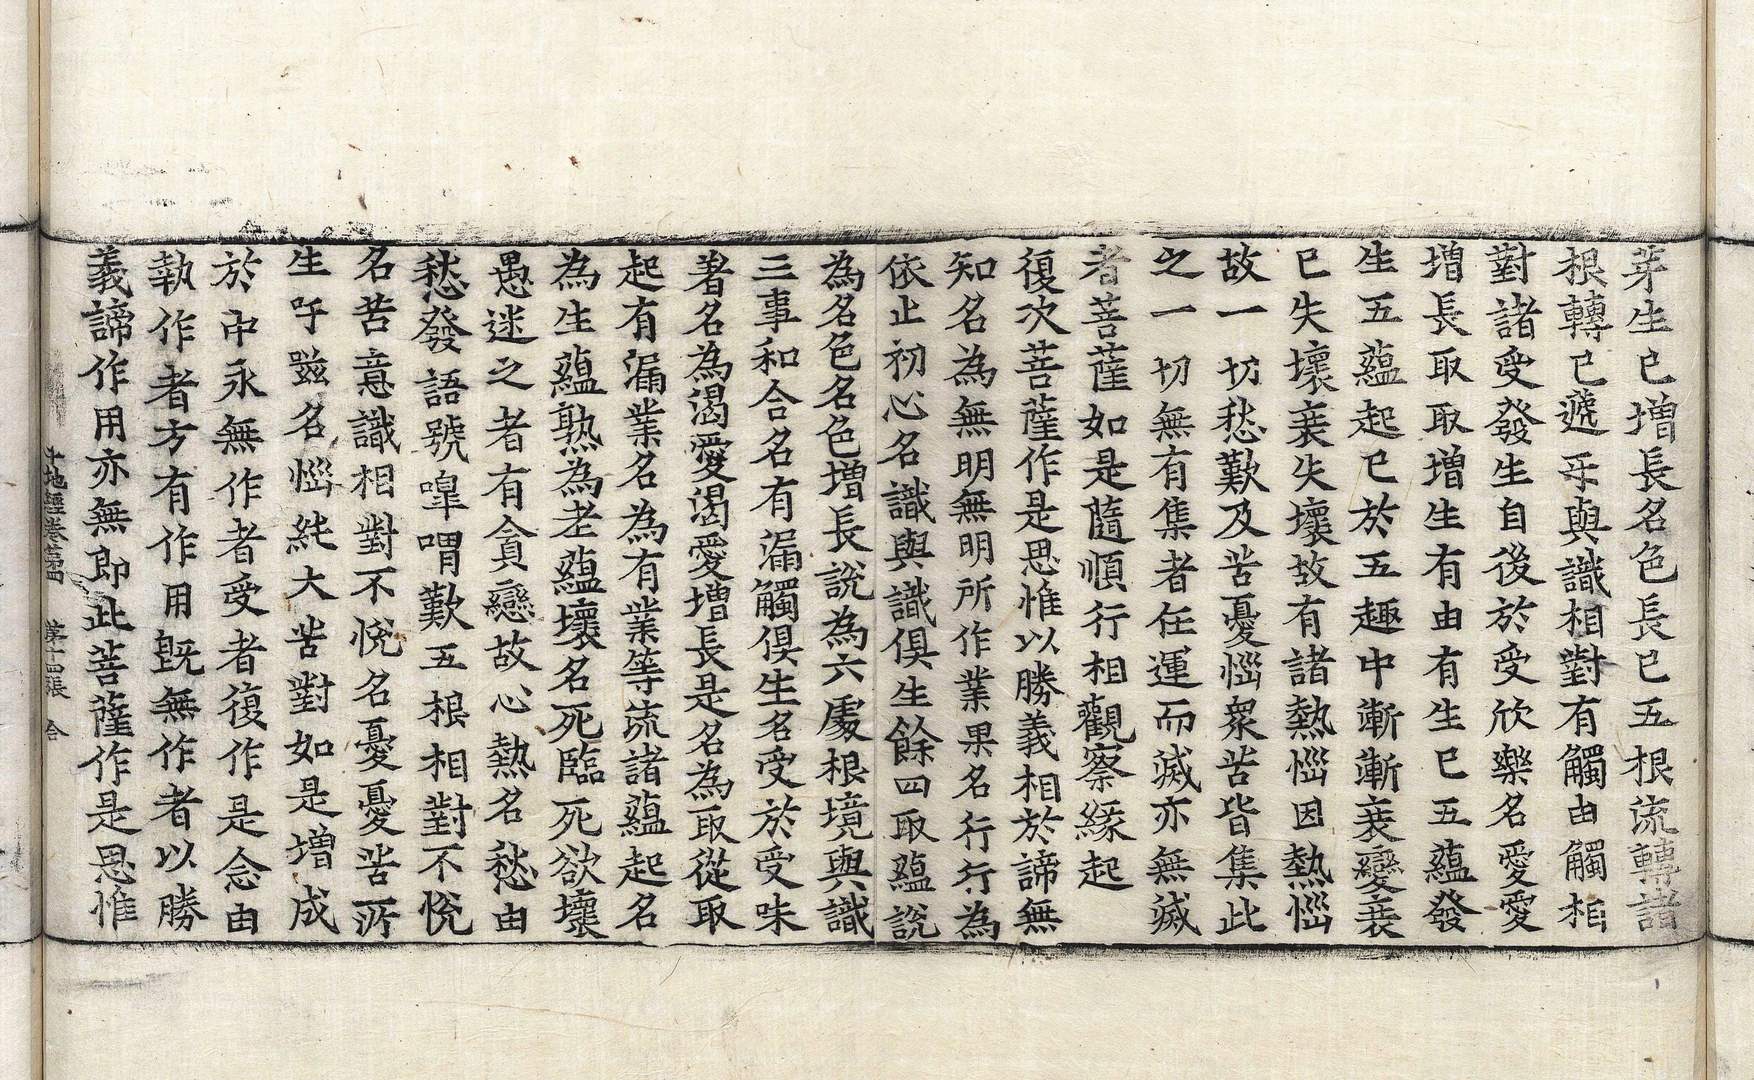 芽生已増長名色長已五根流轉諸
根轉已遞互與識相對有觸由觸相
對諸受發生自後於受欣樂名愛愛
増長取取増生有由有生已五蘊發
生五蘊起已於五趣中漸漸衰變衰
已失壞衰失壞故有諸熱惱因熱惱
故一切愁歎及苦憂惱衆苦皆集此
之一切無有集者任運而滅亦無滅
者菩薩如是隨順行相觀察縁起
復次菩薩作是思惟以勝義相於諦無
知名為無明無明所作業果名行行為
依止初心名識與識俱生餘四取蘊說
為名色名色増長說為六處根境與識
三事和合名有漏觸俱生名受於受味
著名為渴愛渴愛増長是名為取從取
起有漏業名為有業等流諸蘊起名
為生蘊熟為老蘊壞名死臨死欲壞
愚迷之者有貪戀故心熱名愁由
愁發語號嘷喟歎五根相對不悅
名苦意識相對不悅名憂憂苦所
生吁嗞名惱純大苦對如是増成
於中永無作者受者復作是念由
執作者方有作用既無作者以勝
義諦作用亦無即此菩薩作是思惟
十地經卷第四　第十四張　合